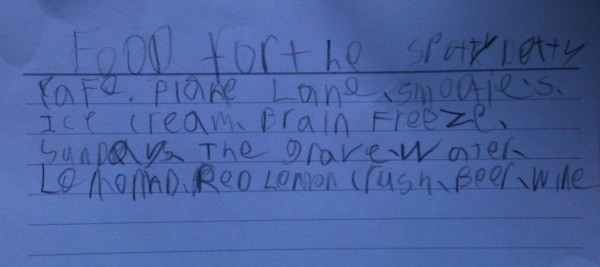 FOOD for the spotty potty
Plane Lane, smooties.
Ice cream, Brain Freeze,
Sundays, The grave, Water,
Red Lemon Crush, Beer, Wine